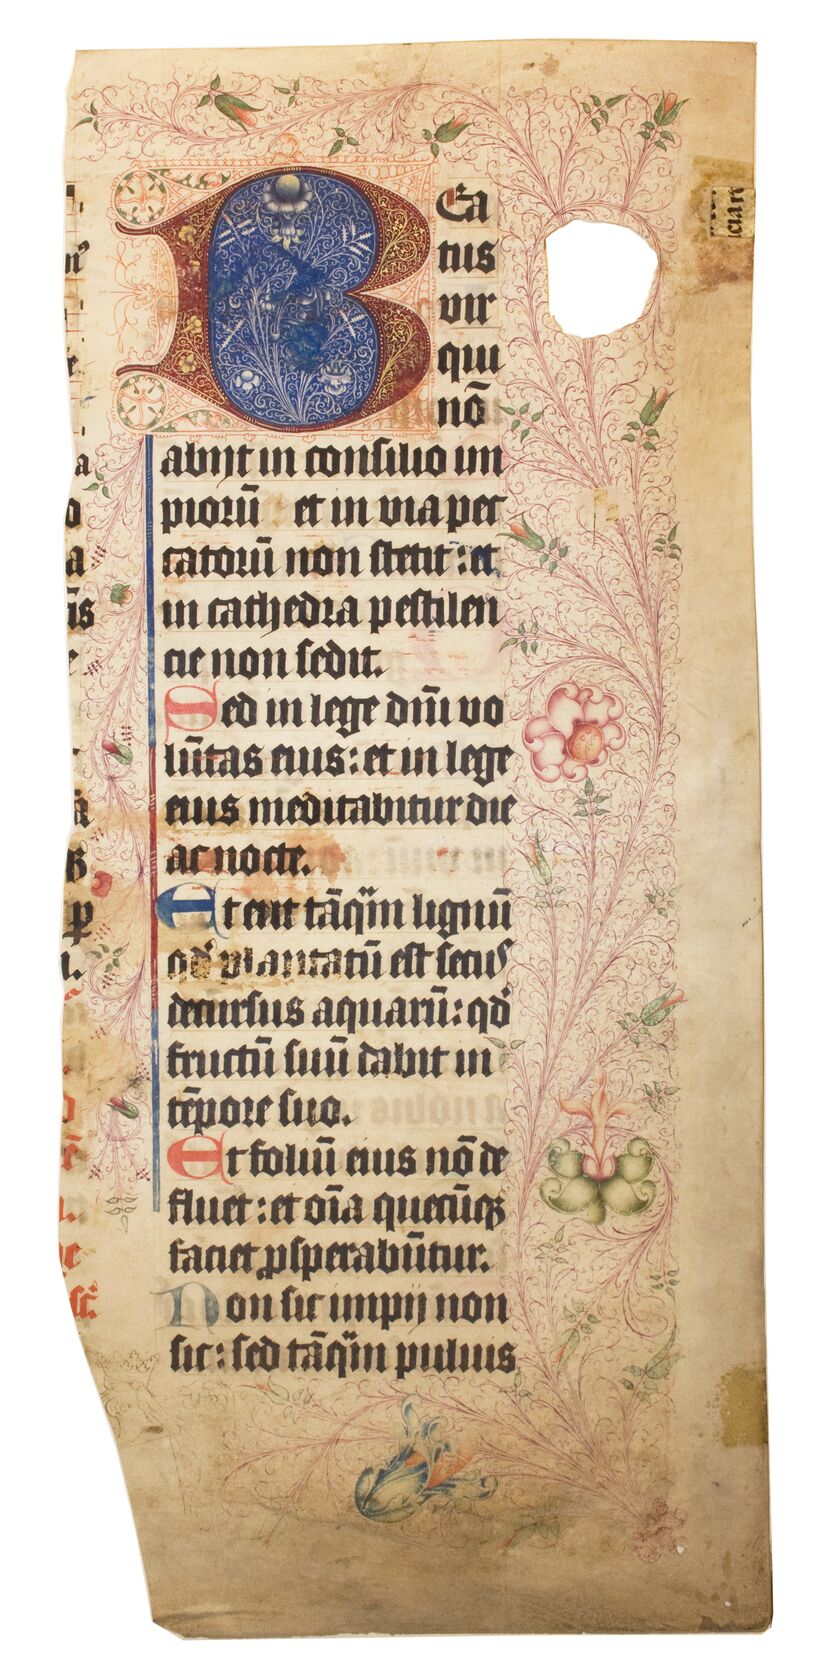 Bea
tus
vir
qui
nō
abijt in consilio im
piorū et in via pec
catorū non stetit : et
in cathedra pestilen
cie non sedit.
Sed in lege dn̄i vo
lūtas eius : et in lege
eius meditabitur die
ac nocte.
Et erit tāq̄m lignū
qd̓ plantatū est secus
decursus aquarū : qd̓
fructū suū dabit in
tēpore suo.
Et foliū eius nō de
fluet : et oīa quecūqꝫ
faciet ꝓsperabūtur.
Non sic impij non
sic : sed tāq̄m puluis